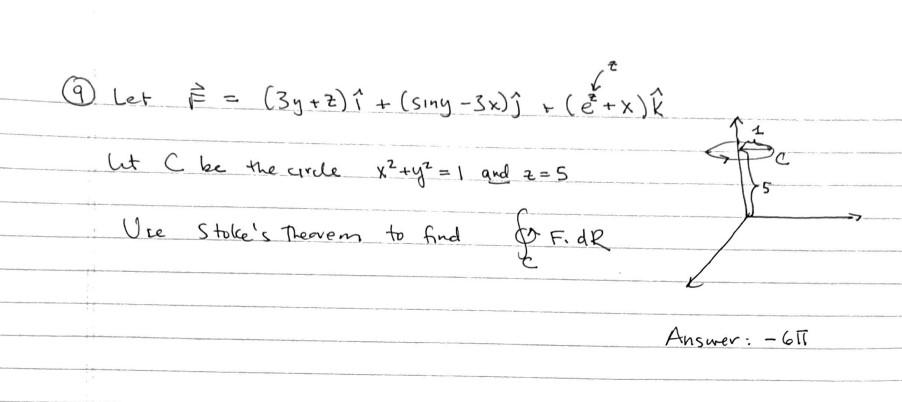 ⑨ Let F⃗ = (3y+z) î + (siny -3x) ĵ + (e^z + x) k̂
z
Let C be the circle x² + y² = 1 and z = 5
1
C
5
Use Stoke's Theorem to find ∮_C F. dR
Answer: -6π